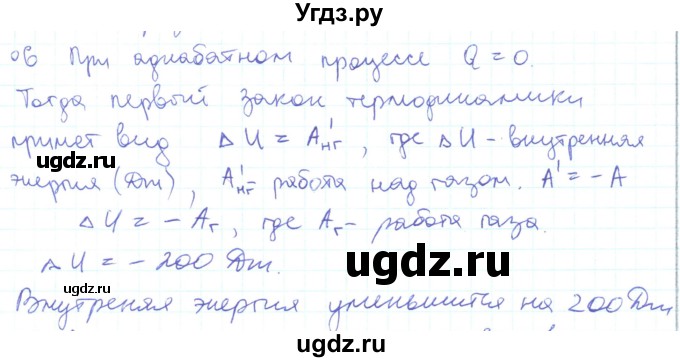 Угдз.ру
об При адиабатном процессе Q = 0.
Тогда первый закон термодинамики
примет вид ΔU = A'нг, где ΔU - внутренняя
ugdz.ru
энергия (Дж), A'нг - работа над газом. A' = - A
ΔU = - Aг, где Aг - работа газа.
ugdz.ru
ΔU = - 200 Дж.
ugdz.ru
ugdz.ru
Внутреняя энергия уменьшится на 200 Дж
ugdz.ru